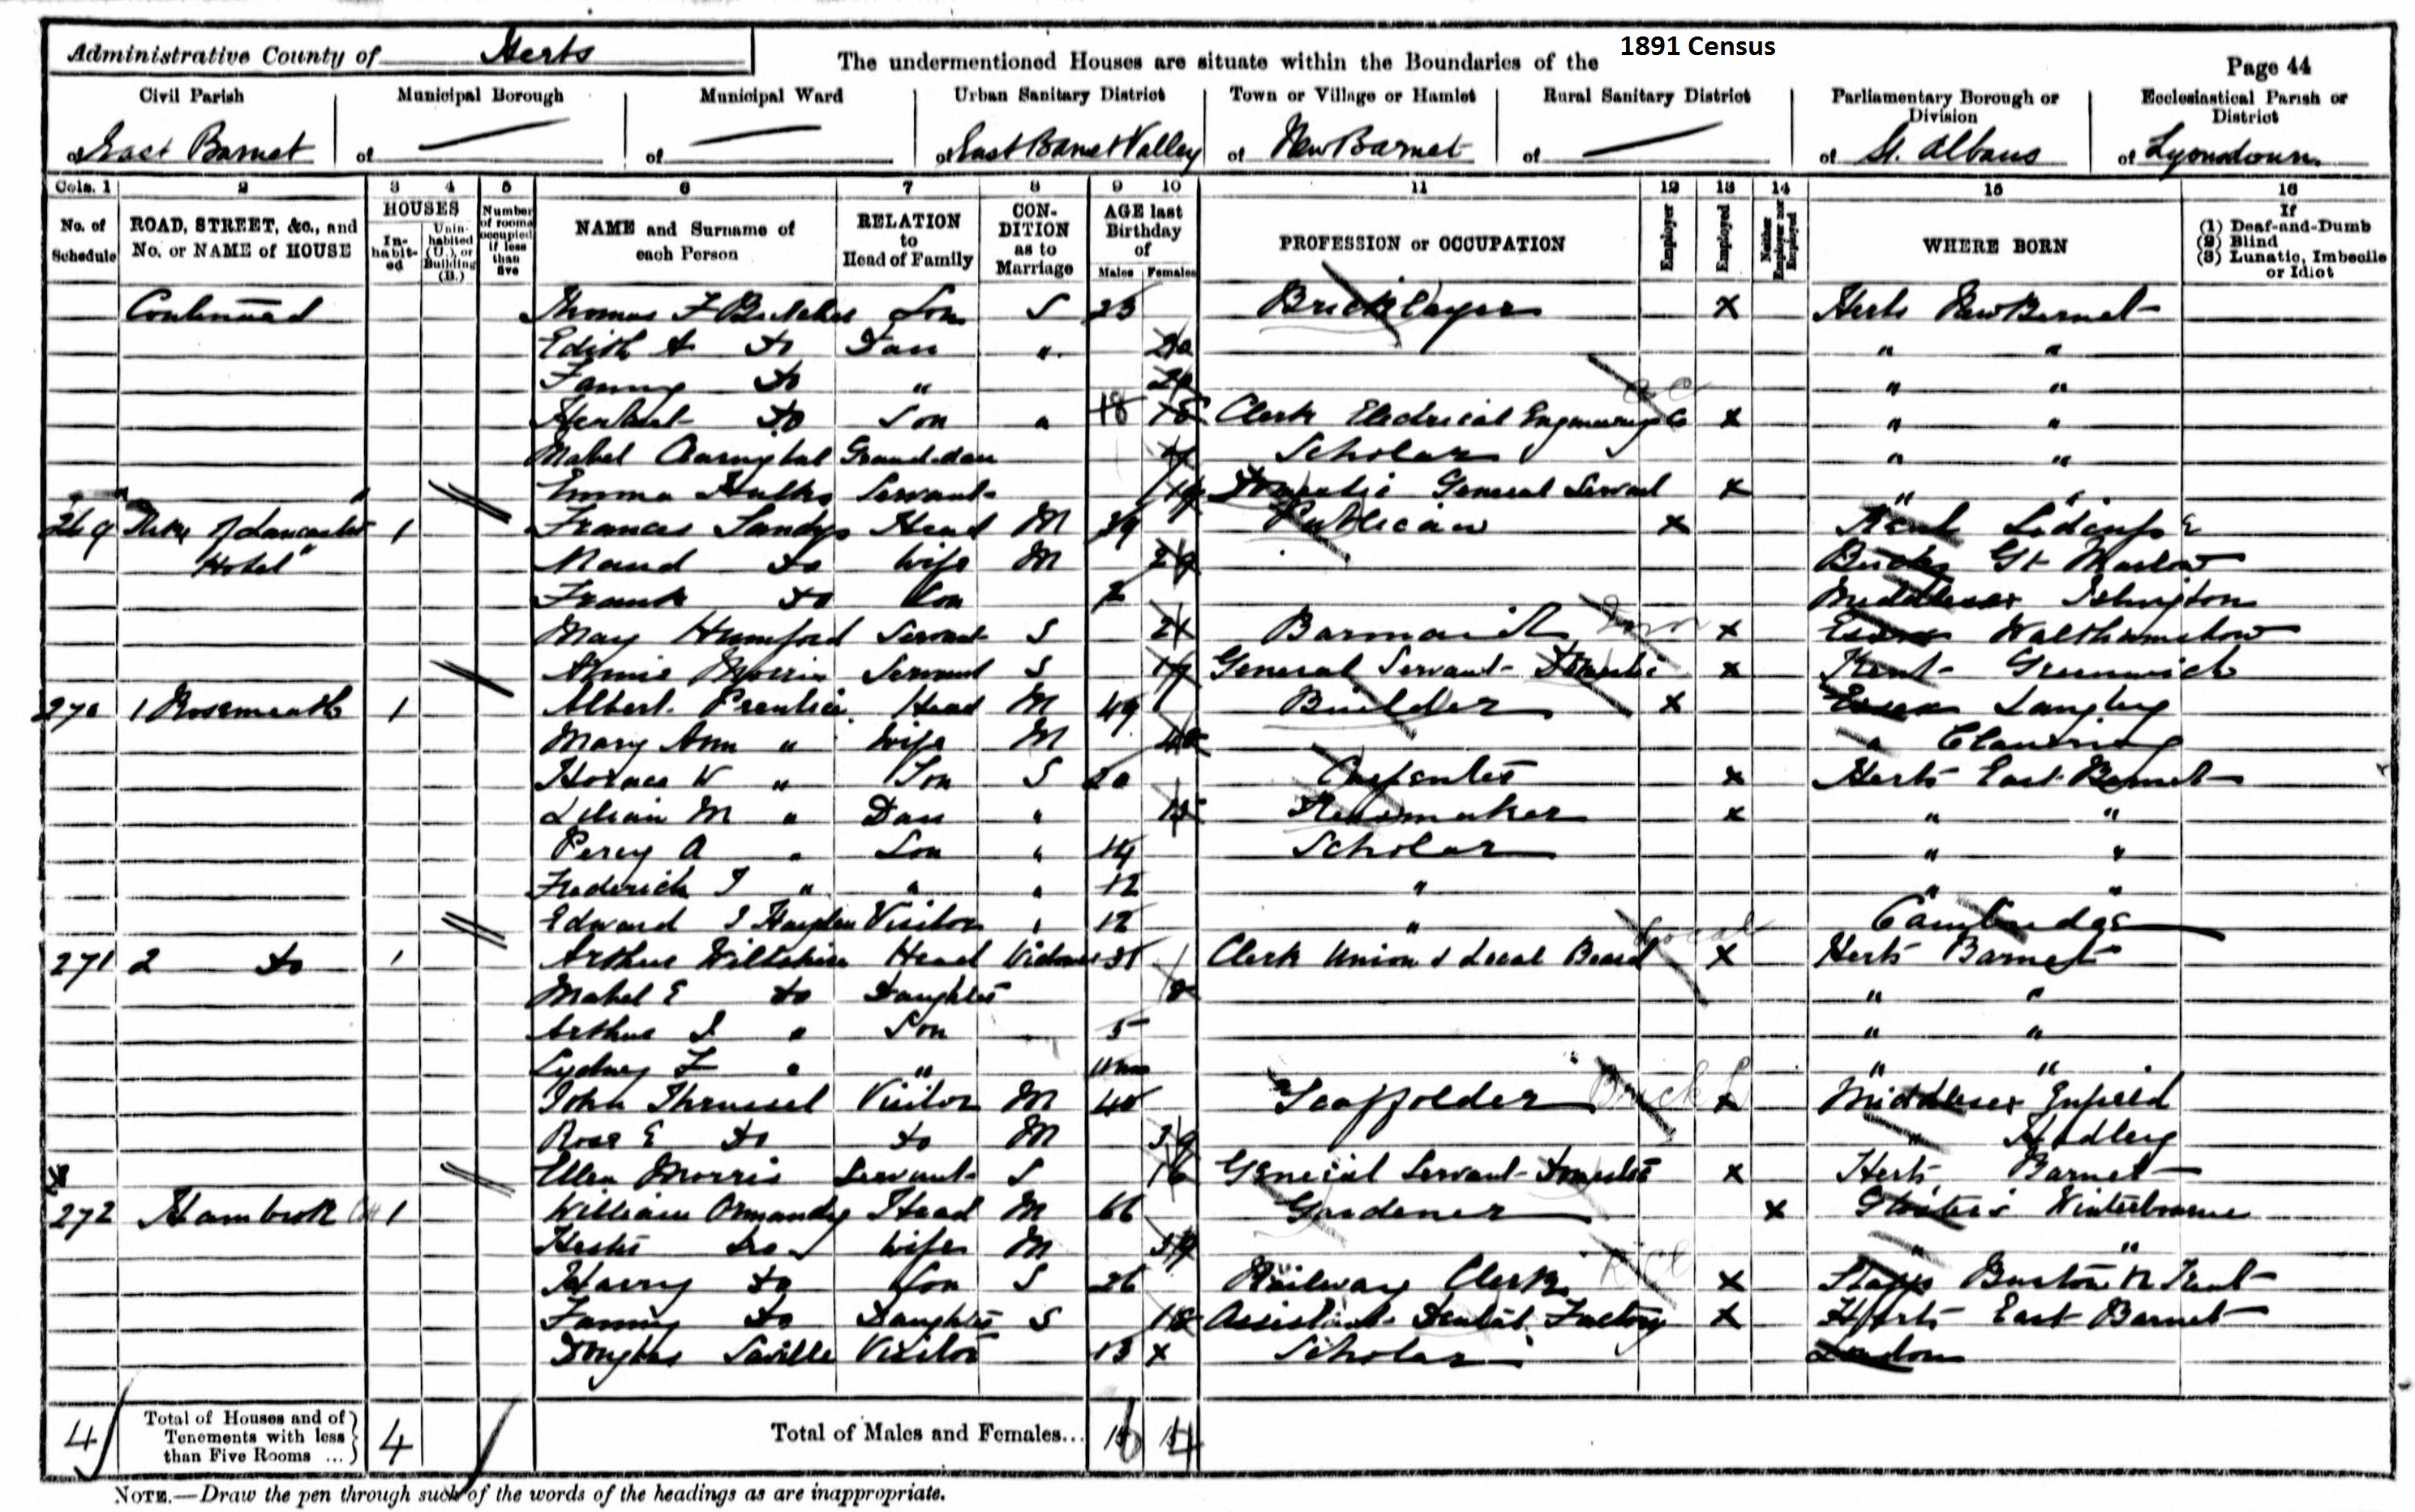 Administrative County of Herts
The undermentioned Houses are situate within the Boundaries of the
1891 Census
Page 44
Civil Parish
Municipal Borough
Municipal Ward
Urban Sanitary District
Town or Village or Hamlet
Rural Sanitary District
Parliamentary Borough or Division
Ecclesiastical Parish or District
of East Barnet
of —
of —
of East Barnet Valley
of New Barnet
of —
of St. Albans
of Lyonsdown
Cols. 1 2 3 4 5 6 7 8 9 10 11 12 13 14 15 16
No. of Schedule
ROAD, STREET, &c., and No. or NAME of HOUSE
HOUSES
In-habit-ed
Unin-habited (U.), or Building (B.)
Number of rooms occupied if less than five
NAME and Surname of each Person
RELATION to Head of Family
CON-DITION as to Marriage
AGE last Birthday of
Males Females
PROFESSION or OCCUPATION
Employer
Employed
Neither Employer nor Employed
WHERE BORN
If
(1) Deaf-and-Dumb
(2) Blind
(3) Lunatic, Imbecile or Idiot
Continued Thomas F Son S 23 Bricklayer x Herts New Barnet
Edith A Do Dau " 20 " "
Fanny Do " " "
Herbert Do Son " 18 Clerk Electrical Engineering Co x " "
Mabel Grand-dau Scholar " "
Emma Servant Domestic General Servant x " "
269 "Duke of Lancaster 1 Frances Sandys Head M 39 Publican x Kent
Hotel" Maud Do Wife M 29 Bucks Gt Marlow
Frank Do Son 2 Middlesex Islington
May Humford Servant S 21 Barmaid x Essex Walthamstow
Annie Morris Servant S 19 General Servant Domestic x Kent Greenwich
270 1 Rosemeath 1 Albert Prentice Head M 49 Builder x Essex Langley
Mary Ann " Wife M " Clavering
Horace W " Son S 20 Carpenter x Herts East Barnet
Lilian M " Dau " x " "
Percy A " Son " 14 Scholar " "
Frederick J " " " 12 " " "
Edward J Visitor " 12 " Cambridge
271 2 Do 1 Arthur Wiltshire Head Widower Clerk Union & Local Board x Herts Barnet
Mabel E Do Daughter 8 " "
Arthur J " Son 5 " "
Sydney F " " " "
John Thrussel Visitor M 40 Scaffolder x Middlesex Enfield
Rose E Do Do M 39 " Hadley
Ellen Morris Servant S 16 General Servant Domestic x Herts Barnet
272 Hambrook 1 William Ormandy Head M 66 Gardener x Winterbourne
Do Wife M " "
Harry Do Son S 26 Railway Clerk x Staffs Burton N Trent
Fanny Do Daughter S 18 Assistant Dental Factory x Herts East Barnet
Douglas Saville Visitor 13 x Scholar London
4 Total of Houses and of Tenements with less than Five Rooms ... 4
Total of Males and Females... 16 14
NOTE.—Draw the pen through such of the words of the headings as are inappropriate.